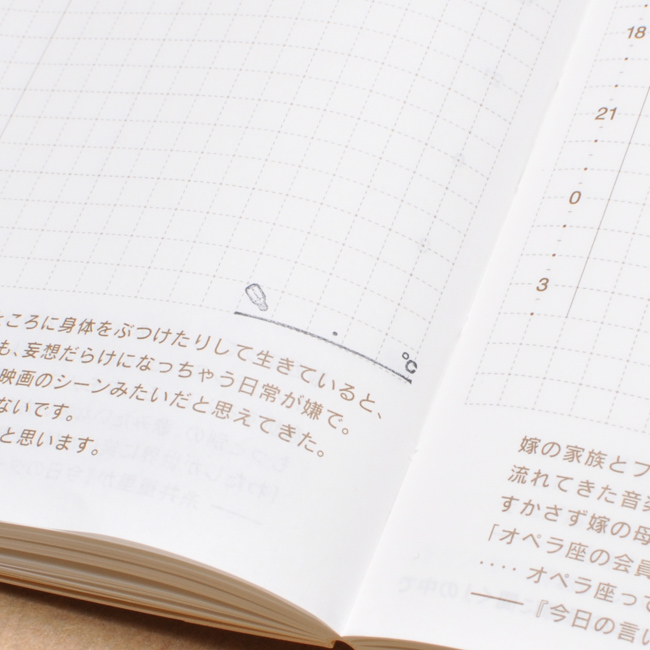 ℃
ころに身体をぶつけたりして生きていると、
も、妄想だらけになっちゃう日常が嫌で。
映画のシーンみたいだと思えてきた。
ないです。
と思います。
18
21
0
3
嫁の家族とフ
流れてきた音楽
すかさず嫁の母
「オペラ座の会員
‥‥オペラ座って
──『今日の言い